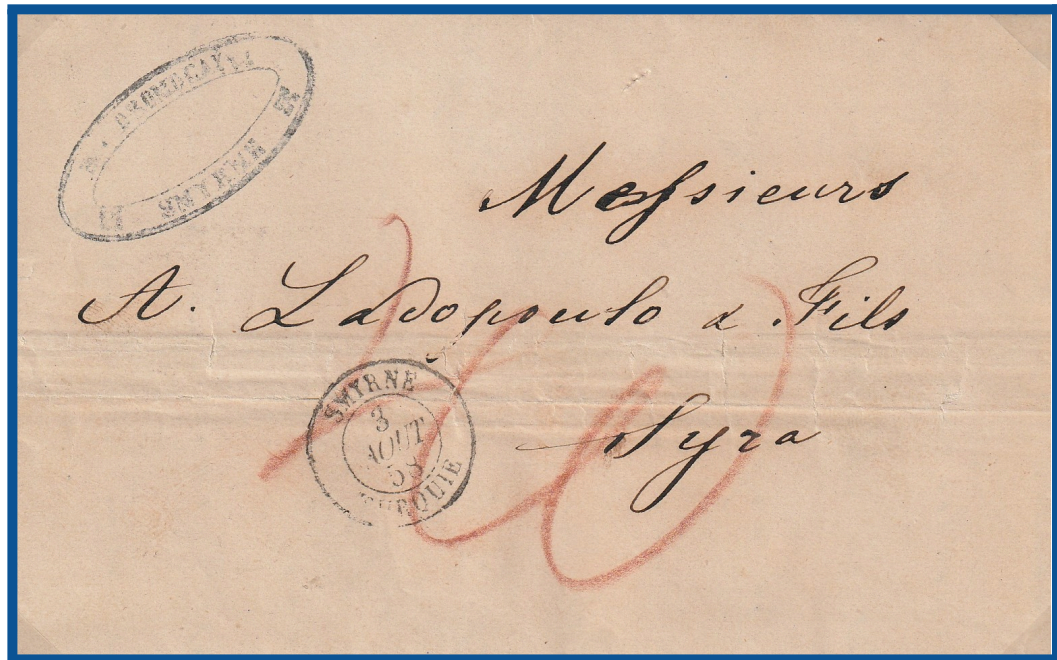 SMYRNE
Messieurs
A. Ladopoulo & Fils
Syra
SMYRNE
3
AOUT
58
TURQUIE
20